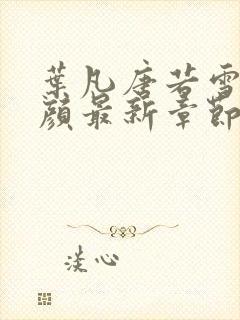 葉凡唐若雪
顏最新章節
淡心